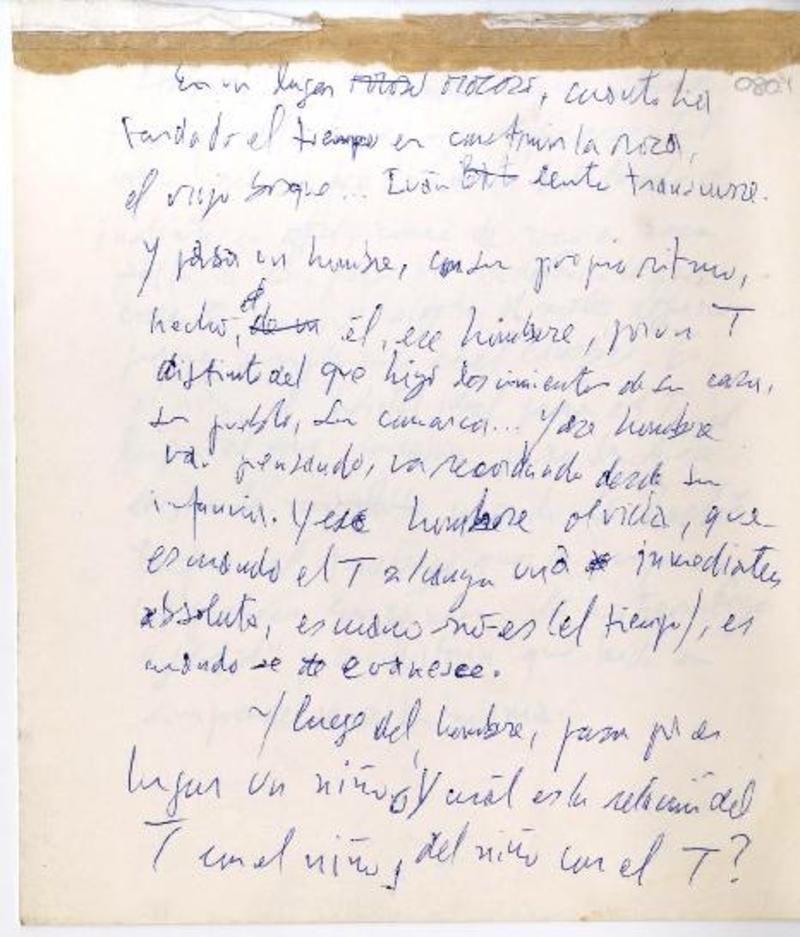 En un lugar rocoso, cuánto ha 0804
tardado el tiempo en construir la roca,
el viejo bosque... Cuán lento transcurre.
Y pasa un hombre, con su propio ritmo,
hecho, él, ese hombre, por un T
distinto del que hizo los cimientos de su casa,
su pueblo, su comarca... Y ese hombre
va pensando, va recordando desde su
infancia. Y ese hombre olvida, que
es cuando el T alcanza una inmediatez
absoluta, es cuando no-es (el tiempo), es
cuando se evanesce.
Y luego del hombre, pasa por ese
lugar un niño ¿Y cuál es la relación del
T con el niño, del niño con el T?